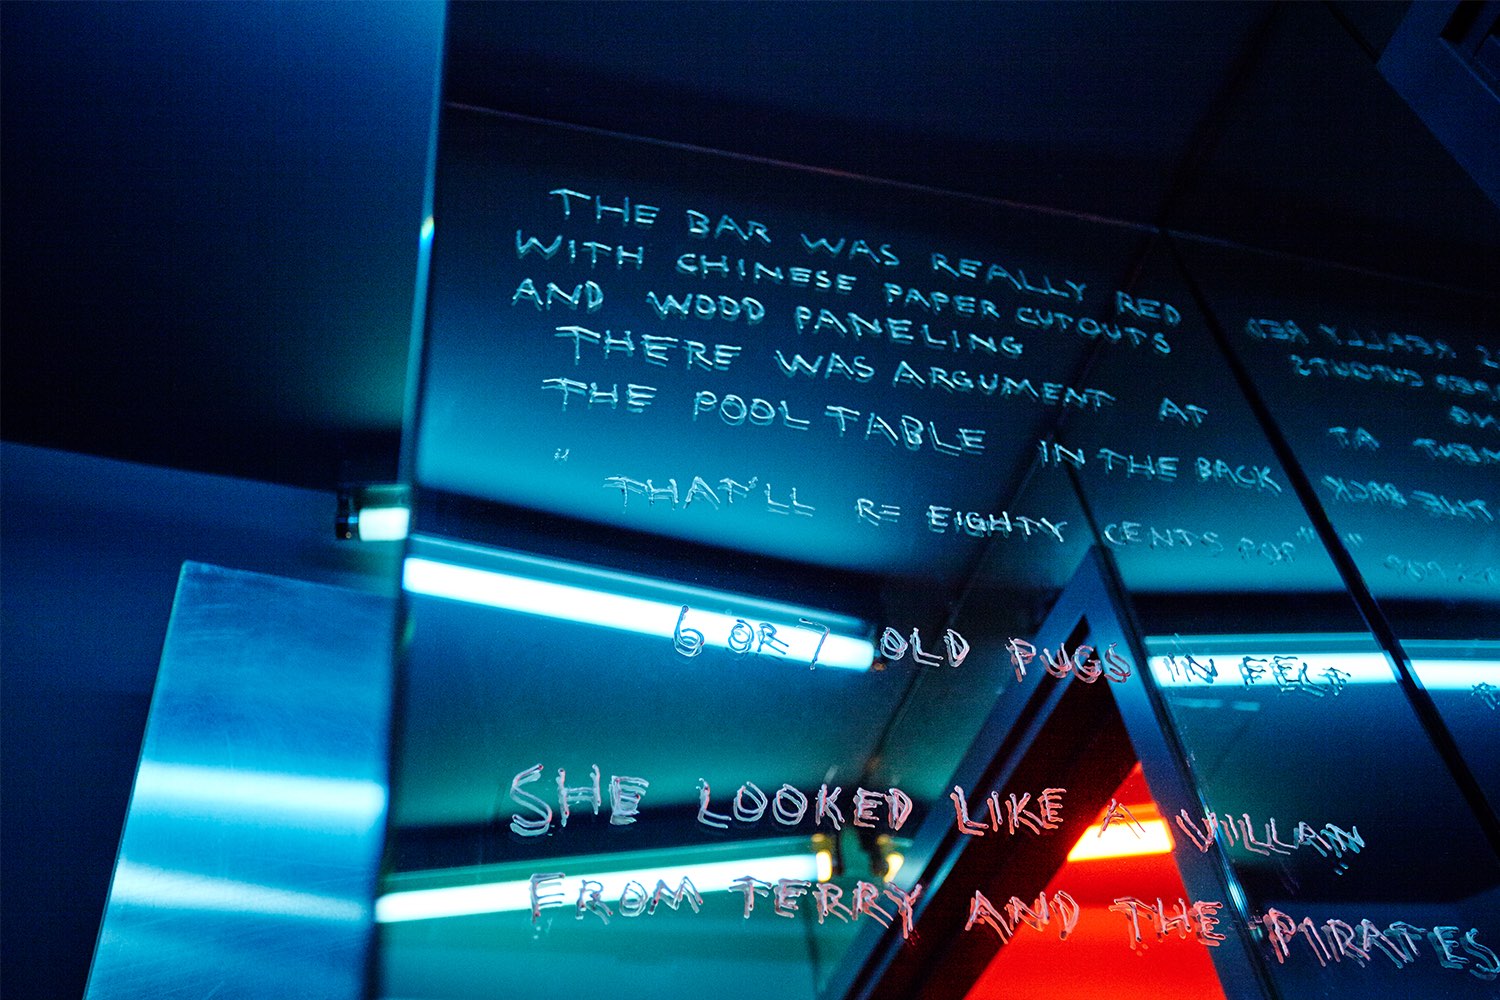 THE BAR WAS REALLY RED
WITH CHINESE PAPER CUTOUTS
AND WOOD PANELING
THERE WAS ARGUMENT AT
THE POOL TABLE IN THE BACK
" THAT'LL BE EIGHTY CENTS POP"
6 OR 7 OLD PUGS IN FELT
SHE LOOKED LIKE A VILLAN
FROM TERRY AND THE PIRATES